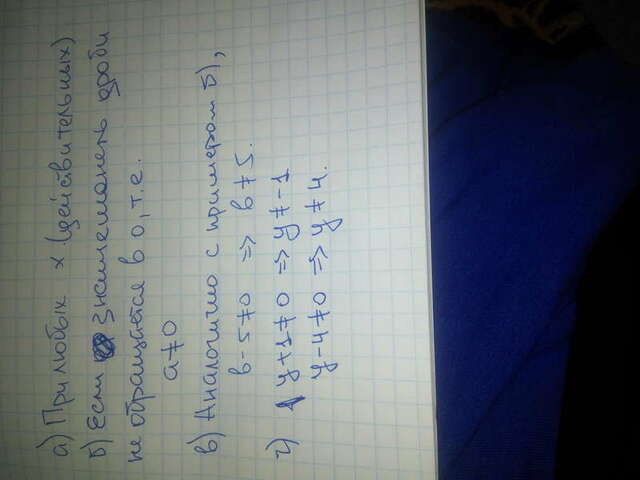 а) При любых x (действительных)
б) Если знаменатель дроби
не обращается в 0, т.е.
a≠0
в) Аналогично с примером Б),
в-5≠0 => в≠5.
г) y+1≠0 => y≠-1
y-4≠0 => y≠4.